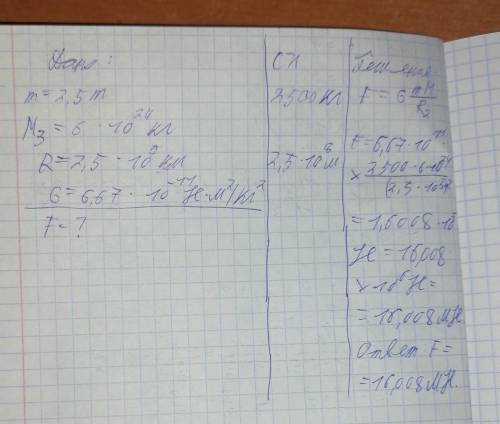 Дано:
m = 2,5 т
M₃ = 6 · 10²⁴ кг
R = 2,5 · 10⁸ км
G = 6,67 · 10⁻¹¹ Н·м²/кг²
F = ?
СИ
2500 кг
2,5·10⁸ м
Решение
F = G mM/R₂
F = 6,67·10⁻¹¹
= 1,6008·10
Н = 16,008
× 10⁶ Н =
= 16,008 МН.
Ответ: F =
= 16,008 МН.